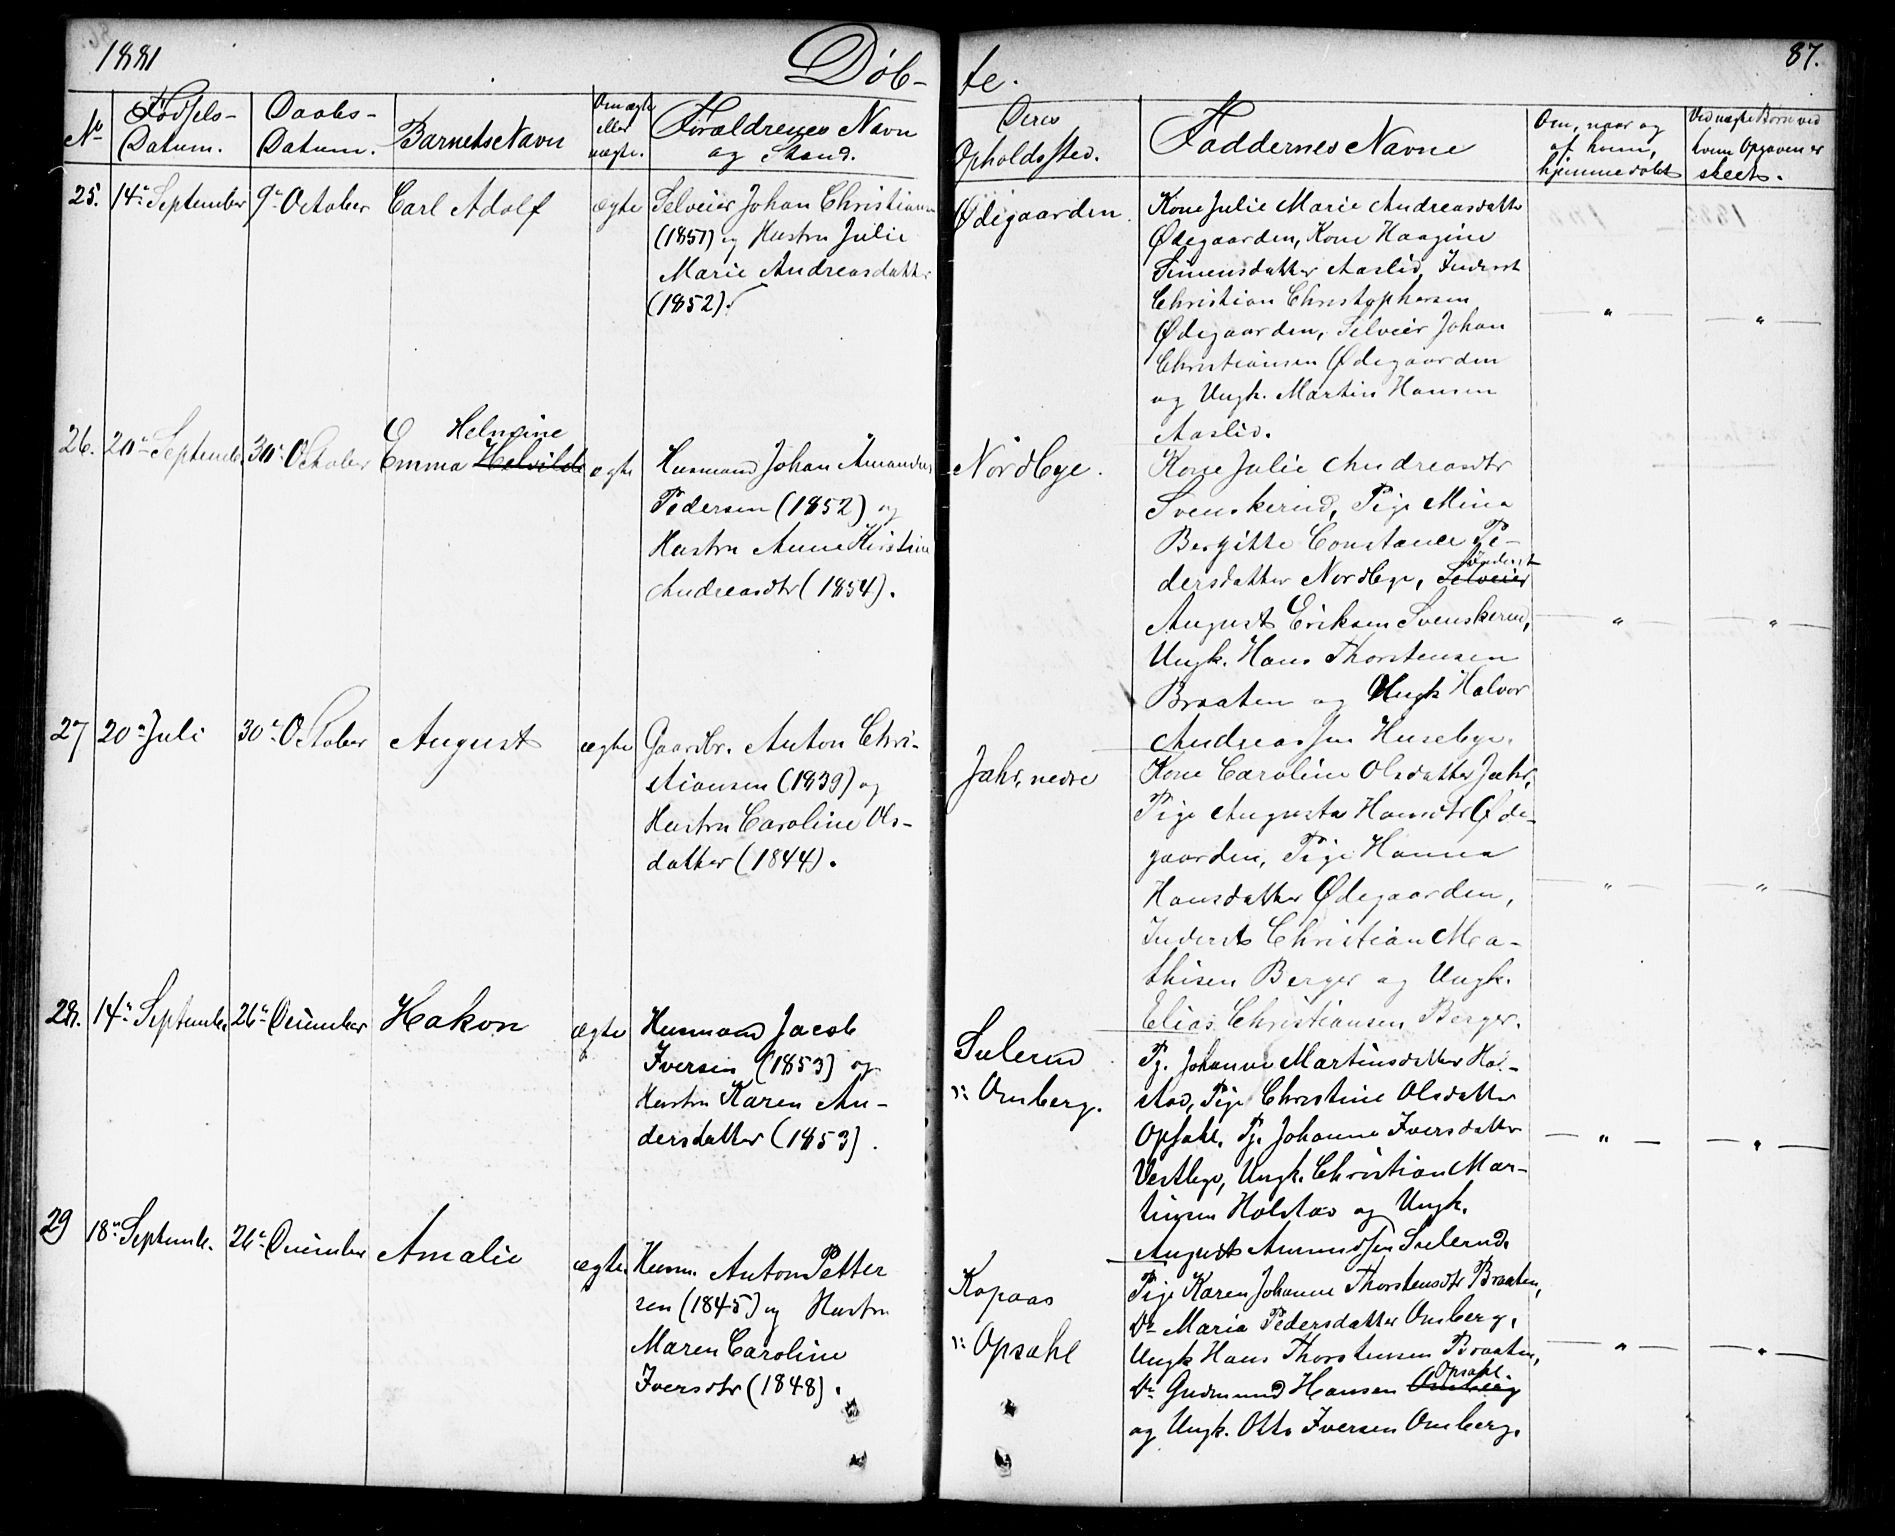 1881
Døb-
te.
87.
No
Fødsels-
Datum.
Daabs-
Datum.
Barnets Navn
Om ægte
eller
uægte.
Forældrenes Navn
og Stand.
Deres
Opholdssted.
Faddernes Navne
Om, naar og
af hvem,
hjemmedøbt
Ved uægte Børn ved
hvem Opgaven er
skeet.
25.
14de September
9de October
Carl Adolf
ægte
Selveier Johan Christiansen
(1851) og Hustru Julie
Marie Andreasdatter
(1852).
Ødegaarden.
Kone Julie Marie Andreasdatter
Ødegaarden, Kone Haagine
Simensdatter Aaslid, Inderst
Christian Christophersen
Ødegaarden, Selveier Johan
Christiansen Ødegaarden
og Ungk. Martin Hansen
Aaslid.
— " —
— " —
26.
20de September
30de October
Helmine
Emma Helvilde
ægte
Husmand Johan Amandus
Pedersen (1852) og
Hustru Anne Kirstine
Andreasdtr (1854).
Nordbye.
Kone Julie Andreasdtr
Svenskerud, Pige Mina
Bergitte Constance Pe-
Inderst
dersdatter Nordbye, Selveier
August Eriksen Svenskerud,
Ungk. Hans Thorstensen
Braaten og Ungk Halvor
Andreassen Husebye.
— " —
— " —
27
20de Juli
30de October
August
ægte
Gaardbr. Anton Chri-
stiansen (1839) og
Hustru Caroline Ols-
datter (1844).
Jahr, nedre
Kone Caroline Olsdatter Jahr,
Pige Augusta Hansdtr Øde-
gaarden, Pige Hanna
Hansdatter Ødegaarden,
Inderst Christian Ma-
thisen Berger og Ungk.
Elias Christiansen Berger.
— " —
— " —
28.
14de September
26de December
Hakon
ægte
Husmand Jacob
Iversen (1853) og
Hustru Karen An-
dersdatter (1853).
Sulerud
v: Omberg.
Pg. Johanne Martinsdatter Hol-
stad, Pige Christine Olsdatter
Opsahl, Pg. Johanne Iversdatter
Vestbye, Ungk. Christian Mar-
tinsen Holstad og Ungk.
August Amundsen Sulerud.
— " —
— " —
29
18de Septemb.
26de December
Amalie
ægte.
Husm. Anton Petter
sen (1845) og Hustru
Maren Caroline
Iversdtr (1848).
Kopaas
v: Opsahl
Pige Karen Johanne Thorstensdtr Braaten,
Do Maria Pedersdatter Omberg,
Ungk Hans Thorstensen Braaten,
Opsahl.
Do Gudmund Hansen Omberg
og Ungk. Otto Iversen Omberg.
— " —
— " —